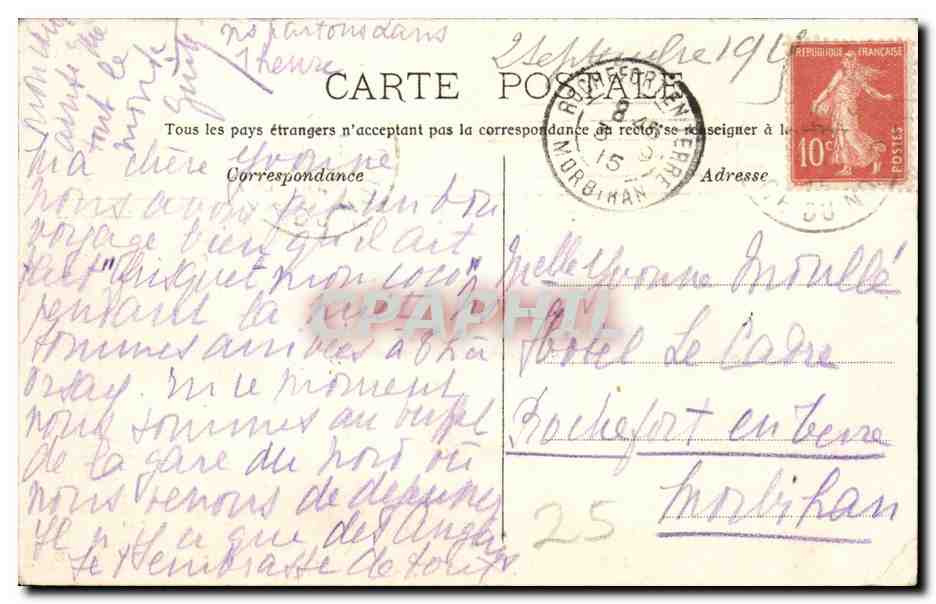 ns partons dans
1 heure
2 Septembre 191
mon
tout le
monde
CARTE POSTALE
REPUBLIQUE FRANÇAISE
10c
POSTES
ROCHEFORT EN TERRE
8 45
3 9
15
MORBIHAN
Tous les pays étrangers n'acceptant pas la correspondance au recto, se renseigner à la
Correspondance
Adresse
Ma chère Yvonne
nous avons fait un bon
voyage bien qu'il ait
fait "frisquet mon coco"
pendant la nuit. ns
sommes arrivées à 8h à
Orsay. En ce moment
nous sommes au buffet
de la gare du Nord où
nous venons de déjeuner
Il n'y a que des Anglais
Je t'embrasse de
Melle Yvonne Moullé
Hotel Le Cadre
Rochefort en terre
Morbihan
25
CPAPHIL